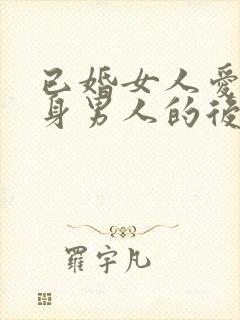 已婚女人愛
身男人的後
羅宇凡